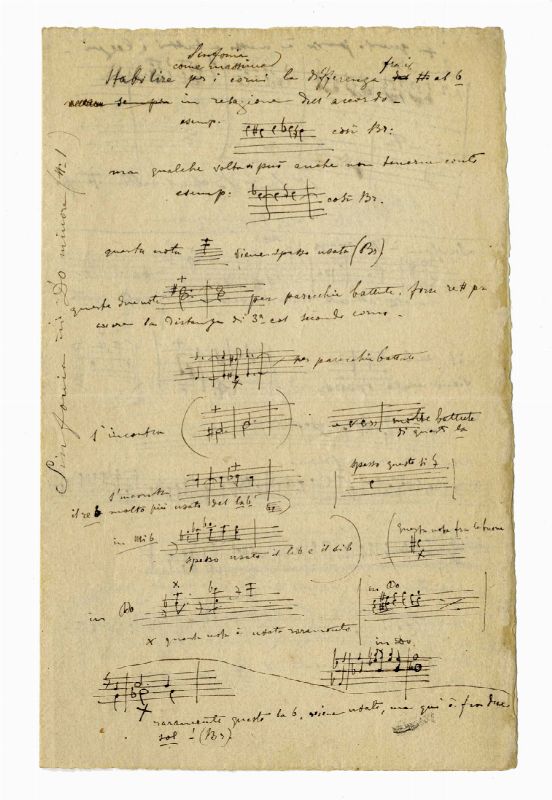 Sinfonia
come massima
Stabilire per i corni la differenza fra il # al b
sempre in relazione dell'accordo_
esemp.
così Br:
ma qualche volta si può anche non tenerne conto
esemp:
così Br.
questa nota
viene spesso usata (Br)
queste due note
per parecchie battute. forse re# per
essere la distanza di 3ª col secondo corno_
per parecchie battute
S'incontra
molte battute
di questi la
S'incontra
spesso questo si b.
il re b molto più usato del la b
in Mi b
spesso usato il la b e il si b
questa nota fra le buone
x
in Do
x
in Do
x questa nota è usata raramente
in Do
x
raramente questo la b. viene usato, ma qui è fra due
sol! (Br)
Sinfonia in Do minore (N. 1)